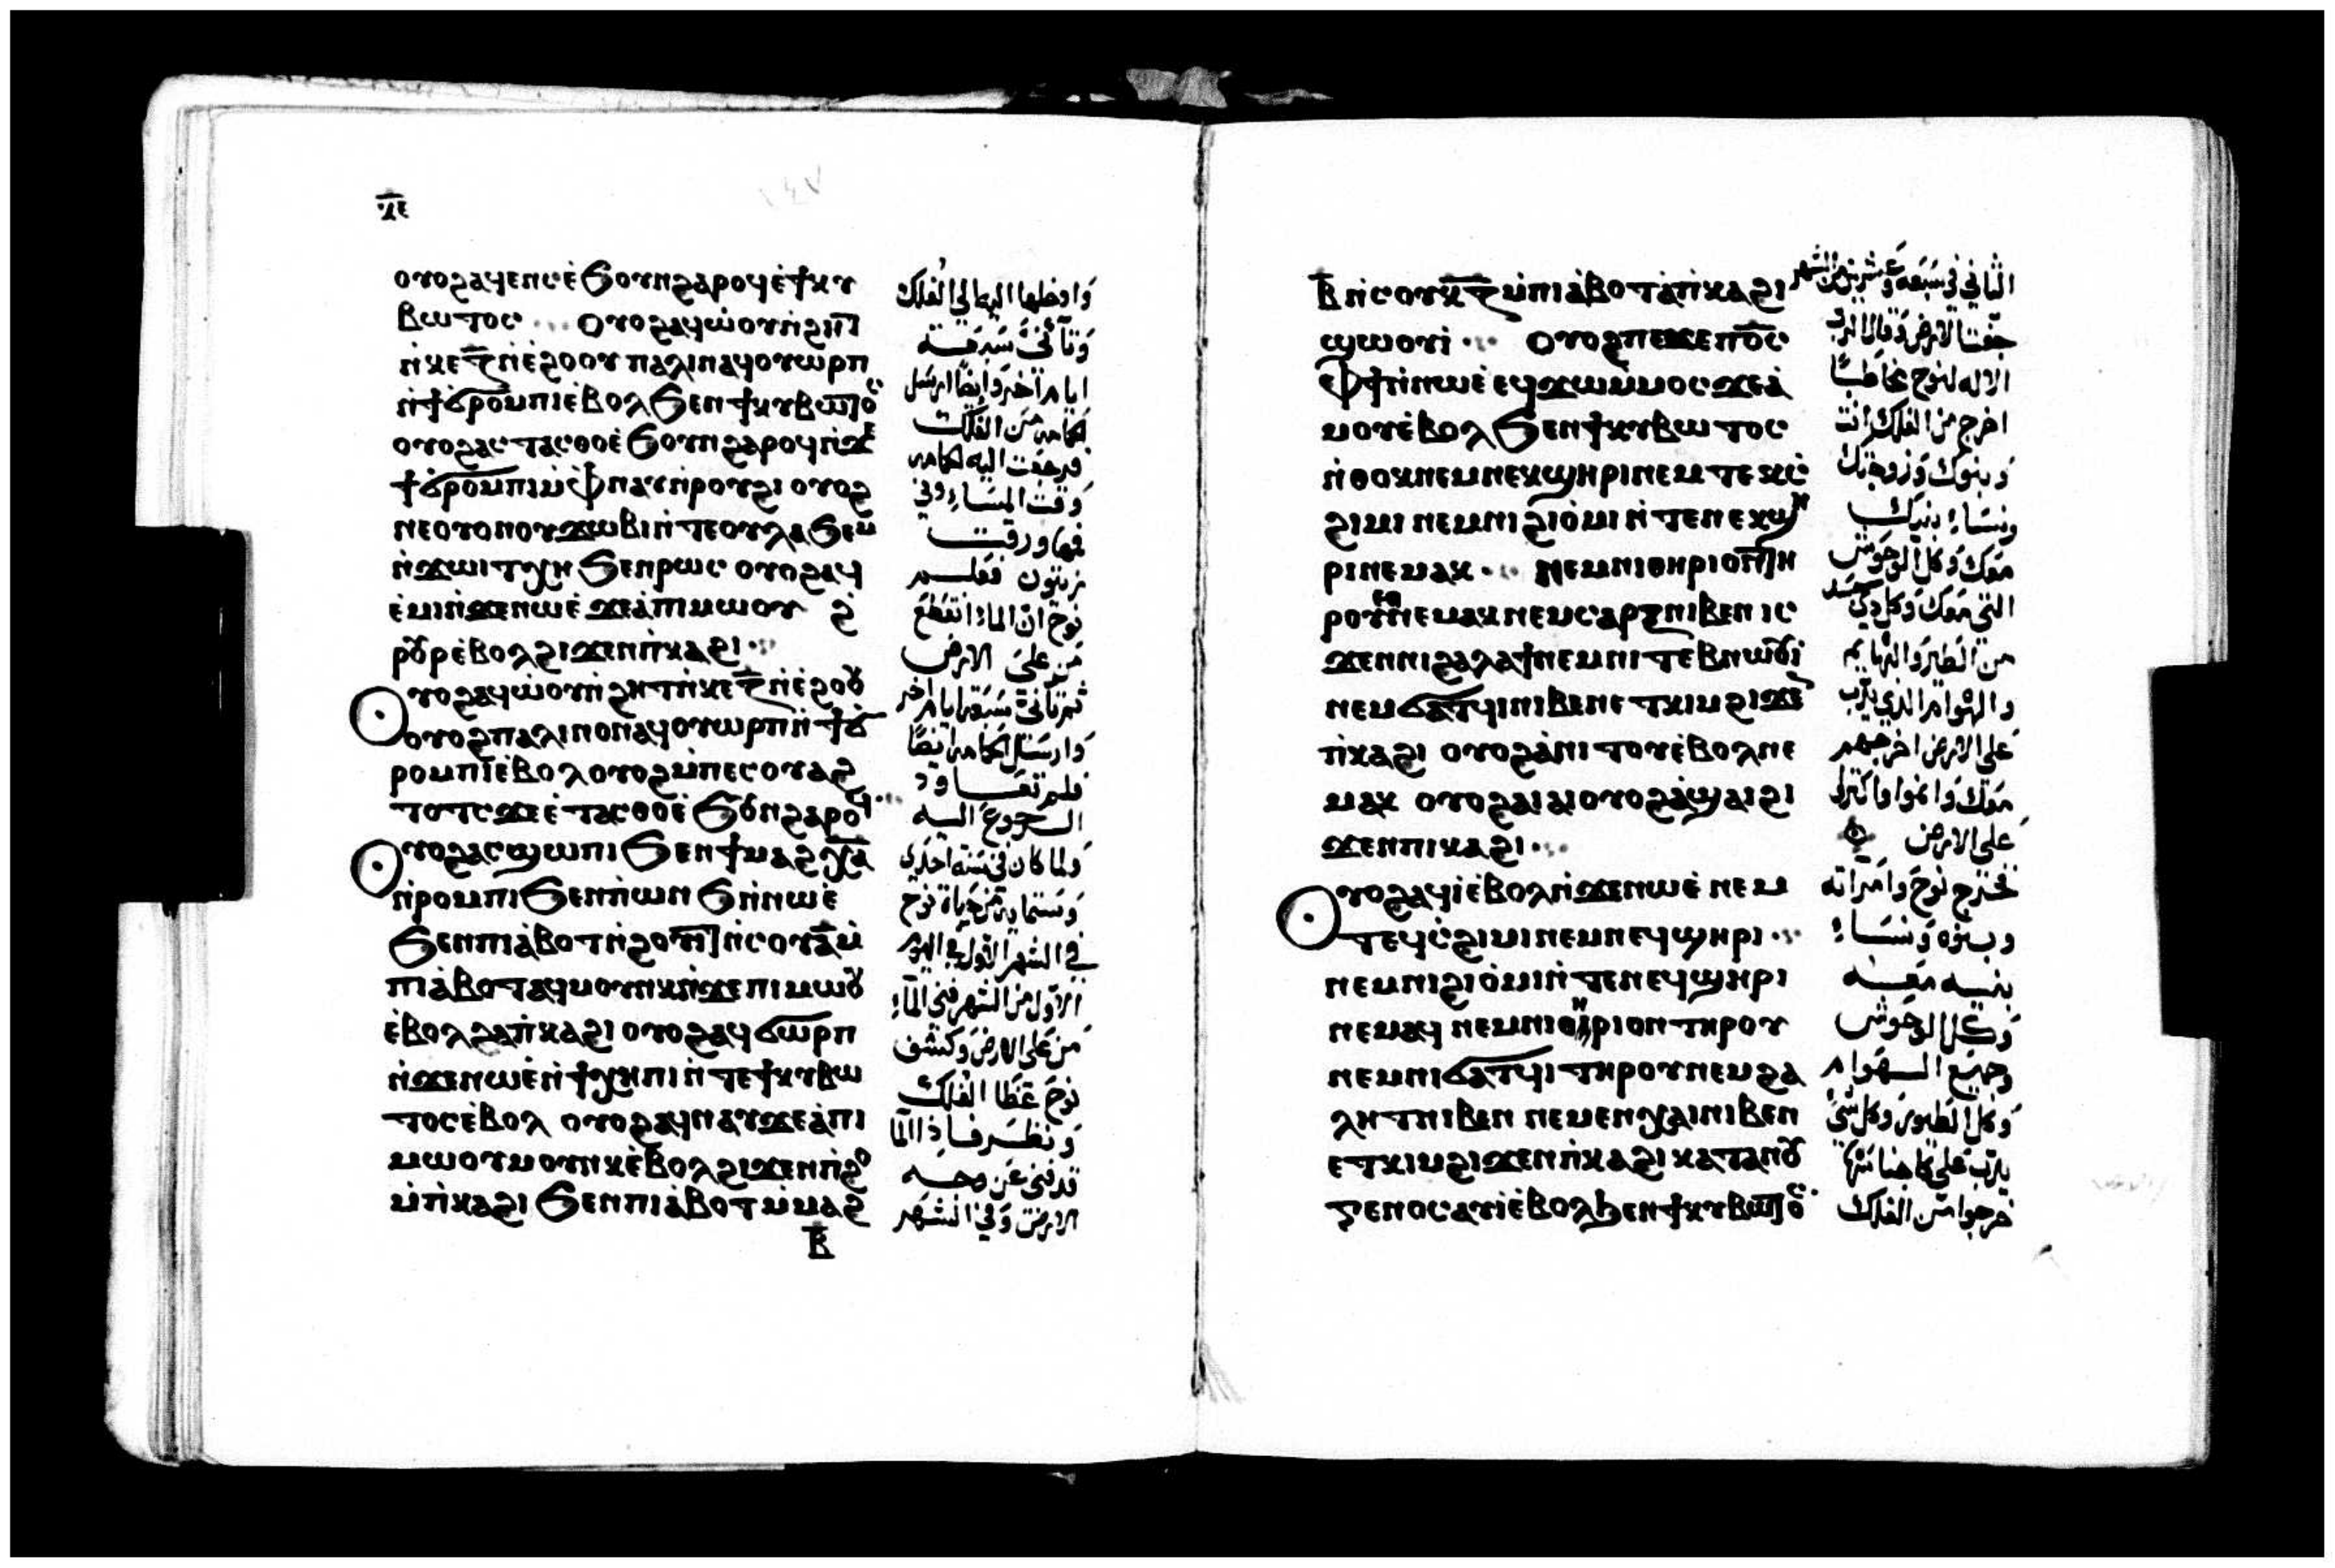 ⲕⲉ
ⲟⲩⲟϩ ⲁϥⲉⲛⲥ ⲉ̀ϧⲟⲩⲛ ϩⲁⲣⲟϥ ⲉ̀ϯⲕⲩ
ⲃⲱⲧⲟⲥ ... ⲟⲩⲟϩ ⲁϥⲱ̀ⲟⲩⲛ̀ϩⲏⲧ
ⲛ̀ⲕⲉ ⲍ̅ ⲛ̀ⲉ̀ϩⲟⲟⲩ ⲡⲁⲗⲓⲛ ⲁϥⲟⲩⲱⲣⲡ
ⲛ̀ϯϭⲣⲟⲙⲡⲓ ⲉ̀ⲃⲟⲗ ϧⲉⲛ ϯⲕⲩⲃⲱⲧⲟⲥ
ⲟⲩⲟϩ ⲁⲥⲧⲁⲥⲑⲟ ⲉ̀ϧⲟⲩⲛ ϩⲁⲣⲟϥ ⲛ̀ϫⲉ
ϯϭⲣⲟⲙⲡⲓ ⲙ̀ⲫⲛⲁⲩ ⲛ̀ⲣⲟⲩϩⲓ ⲟⲩⲟϩ
ⲛⲉ ⲟⲩⲟⲛ ⲟⲩϫⲱⲃⲓ ⲛ̀ⲧⲉ ⲟⲩⲗⲁϧⲉⲙ
ⲛ̀ϫⲱⲓⲧ ⲛ̀ϧⲏ ϧⲉⲛ ⲣⲱⲥ ⲟⲩⲟϩ ⲁϥ
ⲉ̀ⲙⲓ ⲛ̀ϫⲉ ⲛⲱⲉ̀ ϫⲉ ⲁ̀ ⲡⲓⲙⲱⲟⲩ ϩ̀
ⲣⲟⲩⲣ ⲉ̀ⲃⲟⲗ ϩⲓϫⲉⲛ ⲡ̀ⲕⲁϩⲓ ...
ⲟⲩⲟϩ ⲁϥⲱ̀ⲟⲩⲛ̀ϩⲏⲧ ⲛ̀ⲕⲉ ⲍ̅ ⲛ̀ⲉ̀ϩⲟⲟⲩ
ⲟⲩⲟϩ ⲡⲁⲗⲓⲛ ⲟⲛ ⲁϥⲟⲩⲱⲣⲡ ⲛ̀ϯϭ
ⲣⲟⲙⲡⲓ ⲉ̀ⲃⲟⲗ ⲟⲩⲟϩ ⲙ̀ⲡⲉⲥⲟⲩⲁϩ
ⲧⲟⲧⲥ ϫⲉ ⲉ̀ⲧⲁⲥⲑⲟ ⲉ̀ϧⲟⲩⲛ ϩⲁⲣⲟϥ ...
ⲟⲩⲟϩ ⲁⲥϣⲱⲡⲓ ϧⲉⲛ ϯⲙⲁϩ ⲭ̅ⲁ̅
ⲛ̀ⲣⲟⲙⲡⲓ ϧⲉⲛ ⲡ̀ⲱⲛϧ ⲛ̀ⲛⲱⲉ̀
ϧⲉⲛ ⲡⲓⲁ̀ⲃⲟⲧ ⲛ̀ϩⲟⲩⲓⲧ ⲛ̀ⲥⲟⲩ ⲁ̅ ⲙ̀
ⲡⲓⲁ̀ⲃⲟⲧ ⲁϥⲙⲟⲩⲛⲕ ⲛ̀ϫⲉ ⲡⲓⲙⲱⲟⲩ
ⲉ̀ⲃⲟⲗ ϩⲁ ⲡ̀ⲕⲁϩⲓ ⲟⲩⲟϩ ⲁϥϭⲱⲣⲡ
ⲛ̀ϫⲉ ⲛⲱⲉ̀ ⲛ̀ϯϧⲏⲡⲓ ⲛ̀ⲧⲉ ϯⲕⲩⲃⲱ
ⲧⲟⲥ ⲉ̀ⲃⲟⲗ ⲟⲩⲟϩ ⲁϥⲛⲁⲩ ϫⲉ ⲁ̀ ⲡⲓ
ⲙⲱⲟⲩ ⲙⲟⲩⲛⲕ ⲉ̀ⲃⲟⲗ ϩⲓϫⲉⲛ ⲡ̀ϩⲟ
ⲙ̀ⲡ̀ⲕⲁϩⲓ ϧⲉⲛ ⲡⲓⲁ̀ⲃⲟⲧ ⲙ̀ⲙⲁϩ
ⲃ̅
وادخلها اليه الى الفلك
وتأنى سبعة
ايام اخر وايضا ارسل
الحمامه من الفلك
فرجعت اليه الحمامه
وقت المساء وفي
فمها ورقت
زيتون فعلم
نوح ان الماء انقطع
من على الارض
ثم تأنى سبعة ايام اخر
وارسل الحمامه ايضا
فلم تعاود
الرجوع اليه
ولما كان في سنة احدى
وستمايه من حياة نوح
في الشهر الاول في اليوم
الاول من الشهر فنى الماء
من على الارض وكشف
نوح غطا الفلك
ونظر فاذا الما
قد فنى عن وجه
الارض وفي الشهر
ⲃ̅ ⲛ̀ⲥⲟⲩ ⲕ̅ⲍ̅ ⲙ̀ⲡⲓⲁ̀ⲃⲟⲧ ⲁ̀ ⲡ̀ⲕⲁϩⲓ
ϣⲱⲟⲩⲓ̀ ... ⲟⲩⲟϩ ⲡⲉϫⲉ ⲡ̅ⲟ̅ⲥ̅
ⲫϯ ⲛ̀ⲛⲱⲉ̀ ⲉϥϫⲱ ⲙ̀ⲙⲟⲥ ϫⲉ ⲁ̀
ⲙⲟⲩ ⲉ̀ⲃⲟⲗ ϧⲉⲛ ϯⲕⲩⲃⲱⲧⲟⲥ
ⲛ̀ⲑⲟⲕ ⲛⲉⲙ ⲛⲉⲕϣⲏⲣⲓ ⲛⲉⲙ ⲧⲉⲕⲥ̀
ϩⲓⲙⲓ ⲛⲉⲙ ⲛⲓϩⲓⲟ̀ⲙⲓ ⲛ̀ⲧⲉ ⲛⲉⲕϣⲏ
ⲣⲓ ⲛⲉⲙⲁⲕ ... ⲛⲉⲙ ⲛⲓⲑⲏⲣⲓⲟⲛ ⲧⲏ
ⲣⲟⲩ ⲉⲑⲛⲉⲙⲁⲕ ⲛⲉⲙ ⲥⲁⲣⲝ ⲛⲓⲃⲉⲛ ⲓⲥ
ϫⲉⲛ ⲛⲓϩⲁⲗⲁϯ ⲛⲉⲙ ⲛⲓⲧⲉⲃⲛⲱⲟⲩⲓ̀
ⲛⲉⲙ ϭⲁⲧϥⲓ ⲛⲓⲃⲉⲛ ⲉⲧⲕⲓⲙ ϩⲓϫⲉⲛ
ⲡ̀ⲕⲁϩⲓ ⲟⲩⲟϩ ⲁ̀ⲛⲓⲧⲟⲩ ⲉ̀ⲃⲟⲗ ⲛⲉ
ⲙⲁⲕ ⲟⲩⲟϩ ⲁⲓⲁⲓ ⲟⲩⲟϩ ⲁ̀ϣⲁⲓ ϩⲓ
ϫⲉⲛ ⲡⲓⲕⲁϩⲓ ...
ⲟⲩⲟϩ ⲁϥⲓ̀ ⲉ̀ⲃⲟⲗ ⲛ̀ϫⲉ ⲛⲱⲉ̀ ⲛⲉⲙ
ⲧⲉϥⲥ̀ϩⲓⲙⲓ ⲛⲉⲙ ⲛⲉϥϣⲏⲣⲓ ...
ⲛⲉⲙ ⲛⲓϩⲓⲟ̀ⲙⲓ ⲛ̀ⲧⲉ ⲛⲉϥϣⲏⲣⲓ
ⲛⲉⲙⲁϥ ⲛⲉⲙ ⲛⲓⲑⲏⲣⲓⲟⲛ ⲧⲏⲣⲟⲩ
ⲛⲉⲙ ⲛⲓϭⲁⲧϥⲓ ⲧⲏⲣⲟⲩ ⲛⲉⲙ ϩⲁ
ⲗⲏⲧ ⲛⲓⲃⲉⲛ ⲛⲉⲙ ⲉⲛⲭⲁⲓ ⲛⲓⲃⲉⲛ
ⲉⲧⲕⲓⲙ ϩⲓϫⲉⲛ ⲡ̀ⲕⲁϩⲓ ⲕⲁⲧⲁ ⲡⲟⲩ
ⲅⲉⲛⲟⲥ ⲁⲩⲓ̀ ⲉ̀ⲃⲟⲗ ϧⲉⲛ ϯⲕⲩⲃⲱⲧⲟⲥ
الثاني في سبعه وعشرين من الشهر
جفت الارض وقال الرب
الاله لنوح مخاطبا
اخرج من الفلك انت
وبنوك وزوجتك
ونساء بنيك
معك وكل الوحوش
التي معك وكل ذي جسد
من الطير والبهايم
والهوام الذي يدب
على الارض اخرجهم
معك وانموا واكثروا
على الارض
فخرج نوح وامراته
وبنوه ونساء
بنيه معه
وكل الوحوش
وجميع الهوام
وكل الطيور وكل شي
يدب على كاجناسها
خرجوا من الفلك